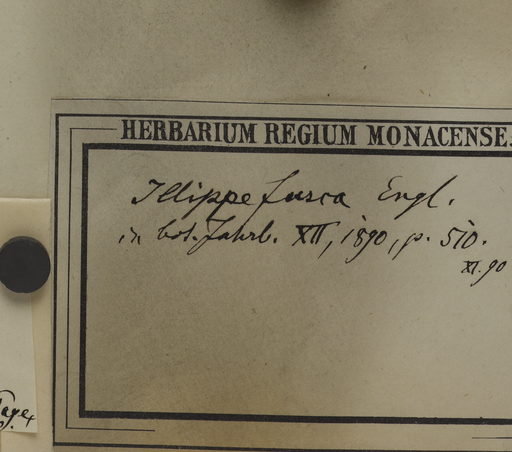 HERBARIUM REGIUM MONACENSE.
Illippe fusca Engl.
in bot. Jahrb. XII, 1890, p. 510.
XI. 90